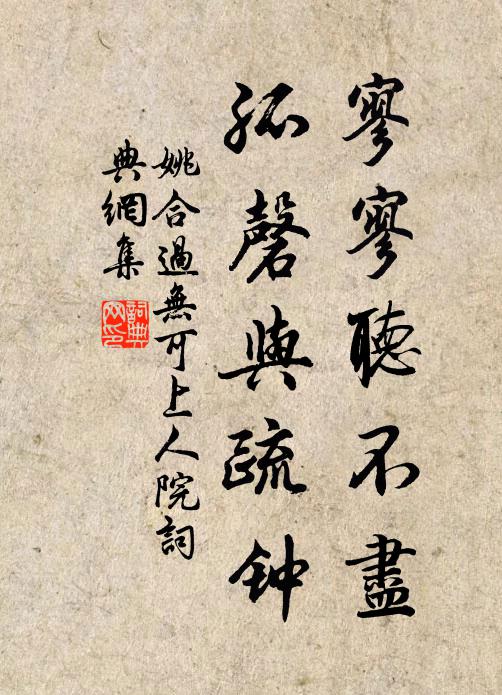 寥寥聽不盡
孤磬與疏钟
姚合過無可上人院詞
典網集
詞典网印